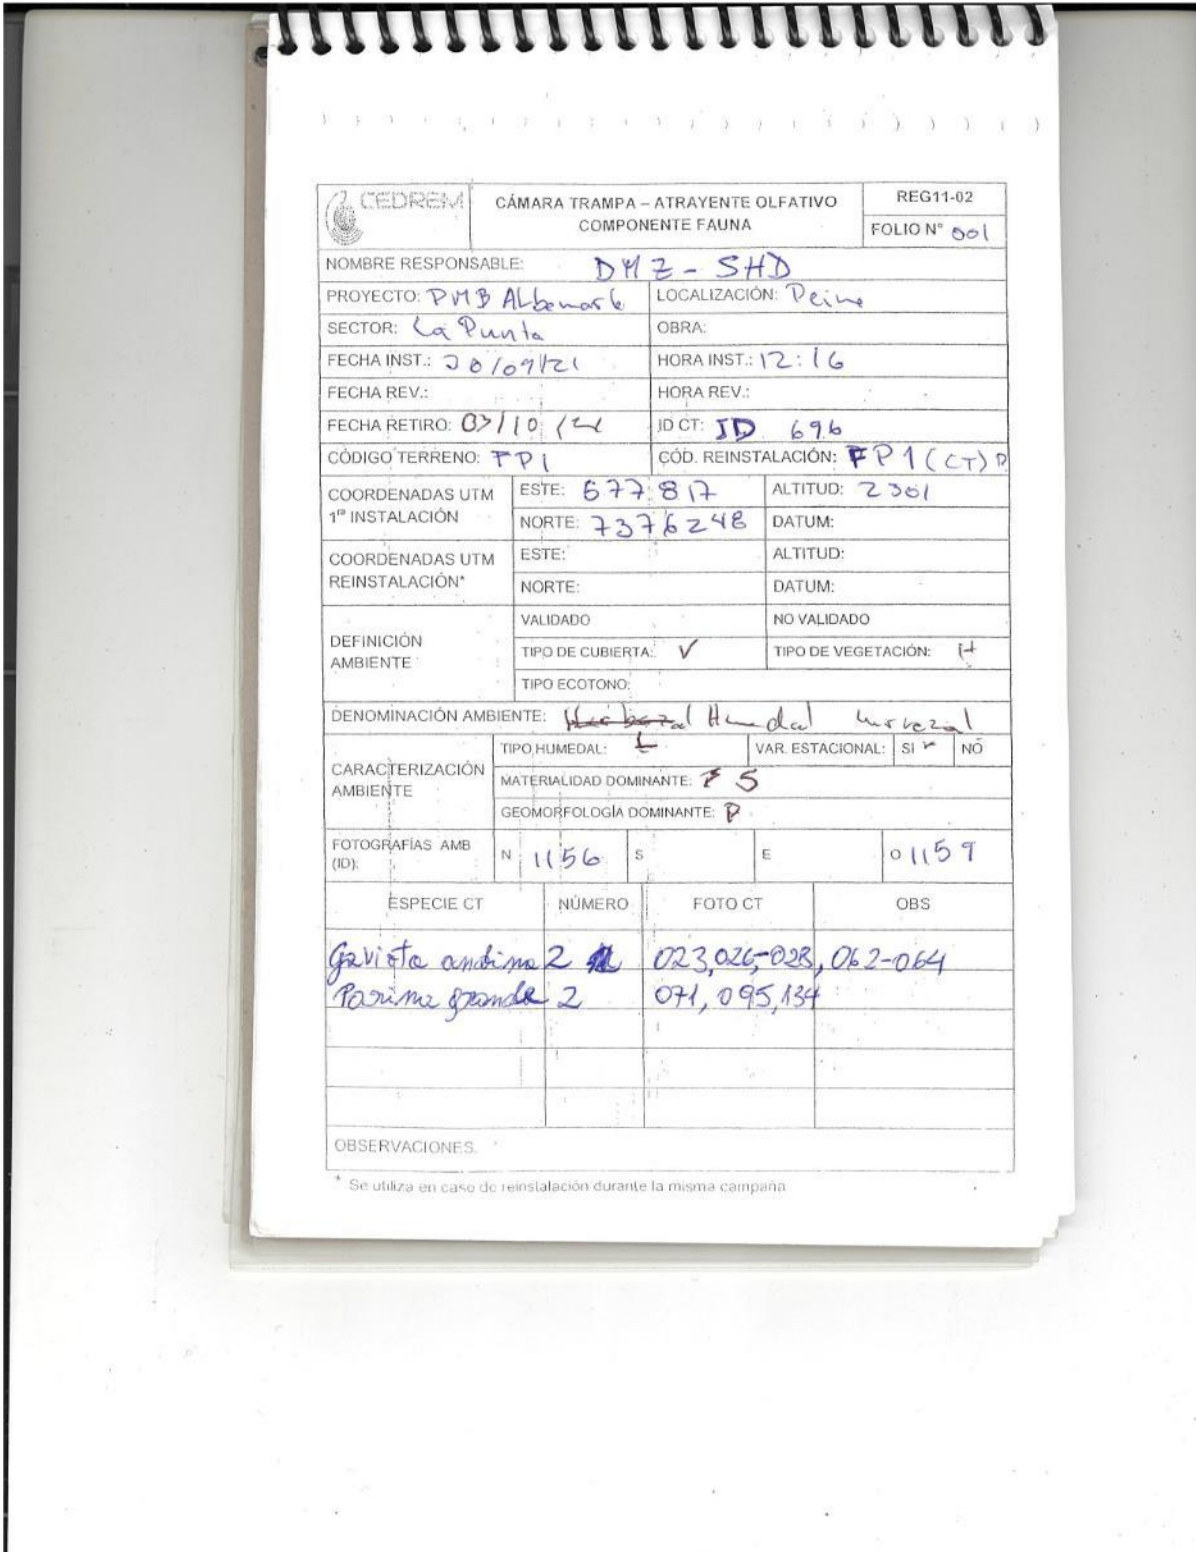 CEDREM
CÁMARA TRAMPA – ATRAYENTE OLFATIVO
COMPONENTE FAUNA
REG11-02
FOLIO N° 001
NOMBRE RESPONSABLE: DMZ - SHD
PROYECTO: PMB Albemarle LOCALIZACIÓN: Peine
SECTOR: La Punta OBRA:
FECHA INST.: 30/09/21 HORA INST.: 12:16
FECHA REV.: HORA REV.:
FECHA RETIRO: 03/10/21 ID CT: ID 696
CÓDIGO TERRENO: FP1 CÓD. REINSTALACIÓN: FP1 (CT) P
COORDENADAS UTM
1ra INSTALACIÓN
ESTE: 577817 ALTITUD: 2301
NORTE: 7376248 DATUM:
COORDENADAS UTM
REINSTALACIÓN*
ESTE: ALTITUD:
NORTE: DATUM:
DEFINICIÓN
AMBIENTE
VALIDADO NO VALIDADO
TIPO DE CUBIERTA: V TIPO DE VEGETACIÓN: H
TIPO ECOTONO:
DENOMINACIÓN AMBIENTE: Humedal
CARACTERIZACIÓN
AMBIENTE
TIPO HUMEDAL: L VAR. ESTACIONAL: SI ✓ NO
MATERIALIDAD DOMINANTE: S
GEOMORFOLOGÍA DOMINANTE: P
FOTOGRAFÍAS AMB
(ID):
N 1156 S E O 1159
ESPECIE CT NÚMERO FOTO CT OBS
Gaviota andina 2 023,026-028, 062-064
Parina grande 2 071, 095,134
OBSERVACIONES.
* Se utiliza en caso de reinstalación durante la misma campaña